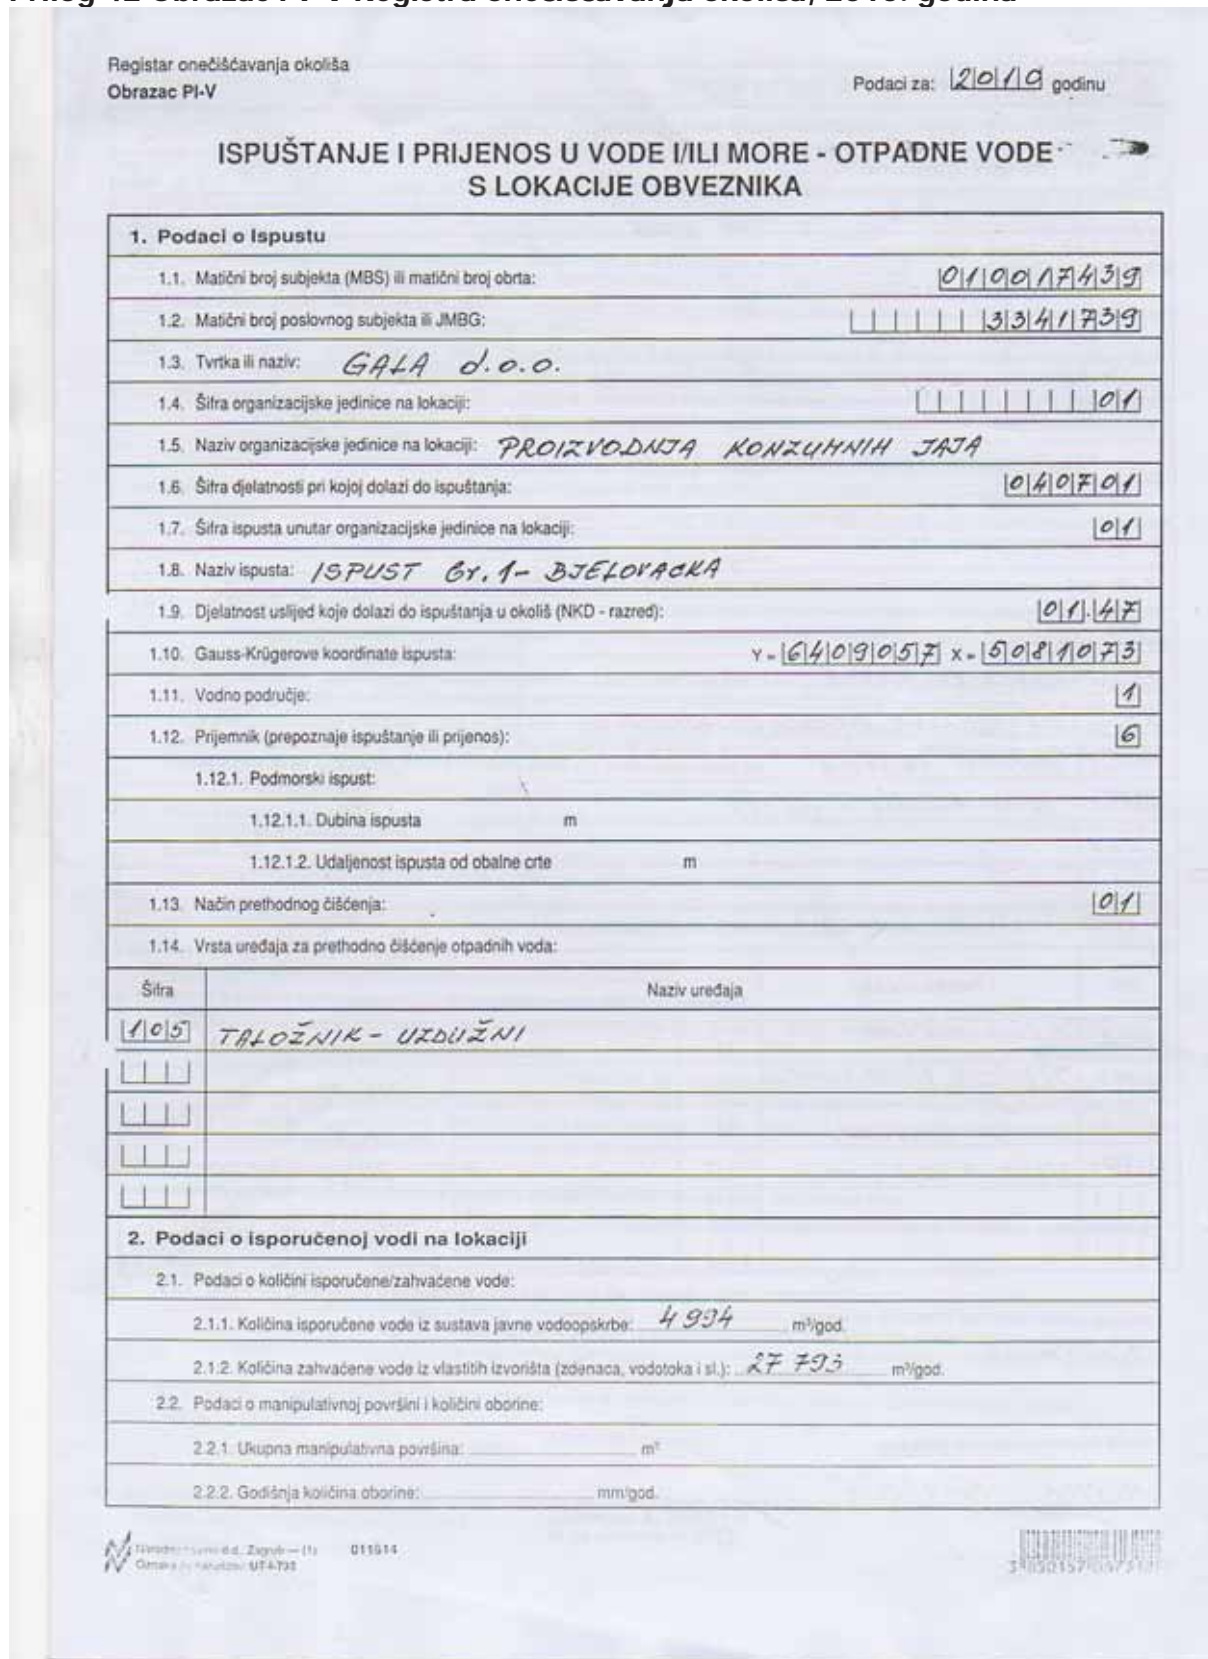 Prilog 12 Obrazac PI-V Registra onečišćavanja okoliša, 2010. godina
Registar onečišćavanja okoliša
Obrazac PI-V
Podaci za: 2010 godinu
ISPUŠTANJE I PRIJENOS U VODE I/ILI MORE - OTPADNE VODE
S LOKACIJE OBVEZNIKA
1. Podaci o Ispustu
1.1. Matični broj subjekta (MBS) ili matični broj obrta: 010017439
1.2. Matični broj poslovnog subjekta ili JMBG: 3341739
1.3. Tvrtka ili naziv: GALA d.o.o.
1.4. Šifra organizacijske jedinice na lokaciji: 01
1.5. Naziv organizacijske jedinice na lokaciji: PROIZVODNJA KONZUMNIH JAJA
1.6. Šifra djelatnosti pri kojoj dolazi do ispuštanja: 040701
1.7. Šifra ispusta unutar organizacijske jedinice na lokaciji: 01
1.8. Naziv ispusta: ISPUST Gr. 1- BJELOVACKA
1.9. Djelatnost uslijed koje dolazi do ispuštanja u okoliš (NKD - razred): 01.47
1.10. Gauss-Krügerove koordinate ispusta: Y = 6409057 X = 5081073
1.11. Vodno područje: 1
1.12. Prijemnik (prepoznaje ispuštanje ili prijenos): 6
1.12.1. Podmorski ispust:
1.12.1.1. Dubina ispusta m
1.12.1.2. Udaljenost ispusta od obalne crte m
1.13. Način prethodnog čišćenja: 01
1.14. Vrsta uređaja za prethodno čišćenje otpadnih voda:
Šifra Naziv uređaja
105 TALOŽNIK - UZDUŽNI
2. Podaci o isporučenoj vodi na lokaciji
2.1. Podaci o količini isporučene/zahvaćene vode:
2.1.1. Količina isporučene vode iz sustava javne vodoopskrbe: 4 994 m³/god.
2.1.2. Količina zahvaćene vode iz vlastitih izvorišta (zdenaca, vodotoka i sl.): 27 793 m³/god.
2.2. Podaci o manipulativnoj površini i količini oborine:
2.2.1. Ukupna manipulativna površina: m²
2.2.2. Godišnja količina oborine: mm/god.
Narodne novine d.d., Zagreb — (1) 011614
Oznaka za narudžbu UT-I-733